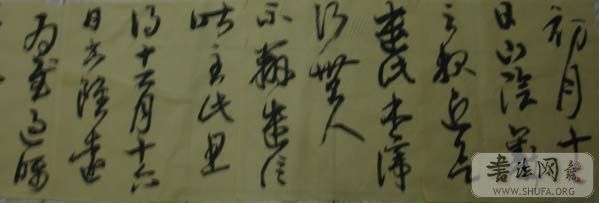 初月十
日山陰羲
之報近欲
遣此書停
行無人
不辦遣信
昨至此且
得去月十六
日書雖遠
為慰過囑
書法网
WWW.SHUFA.ORG